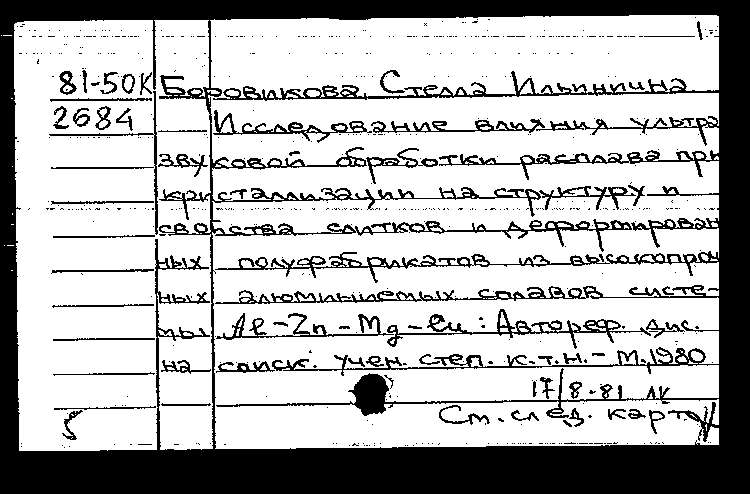 1
81-50К Боровикова, Стелла Ильинична
2684 Исследование влияния ультра
звуковой обработки расплава при
кристаллизации на структуру и
свойства слитков и деформирован
ных полуфабрикатов из высокопроч
ных алюминиемых сплавов систе-
мы Al-Zn-Mg-Cu: Автореф. дис.
на соиск. учен. степ. к.т.н.- М.,1980
17/8-81 ЛК
См. след. карту